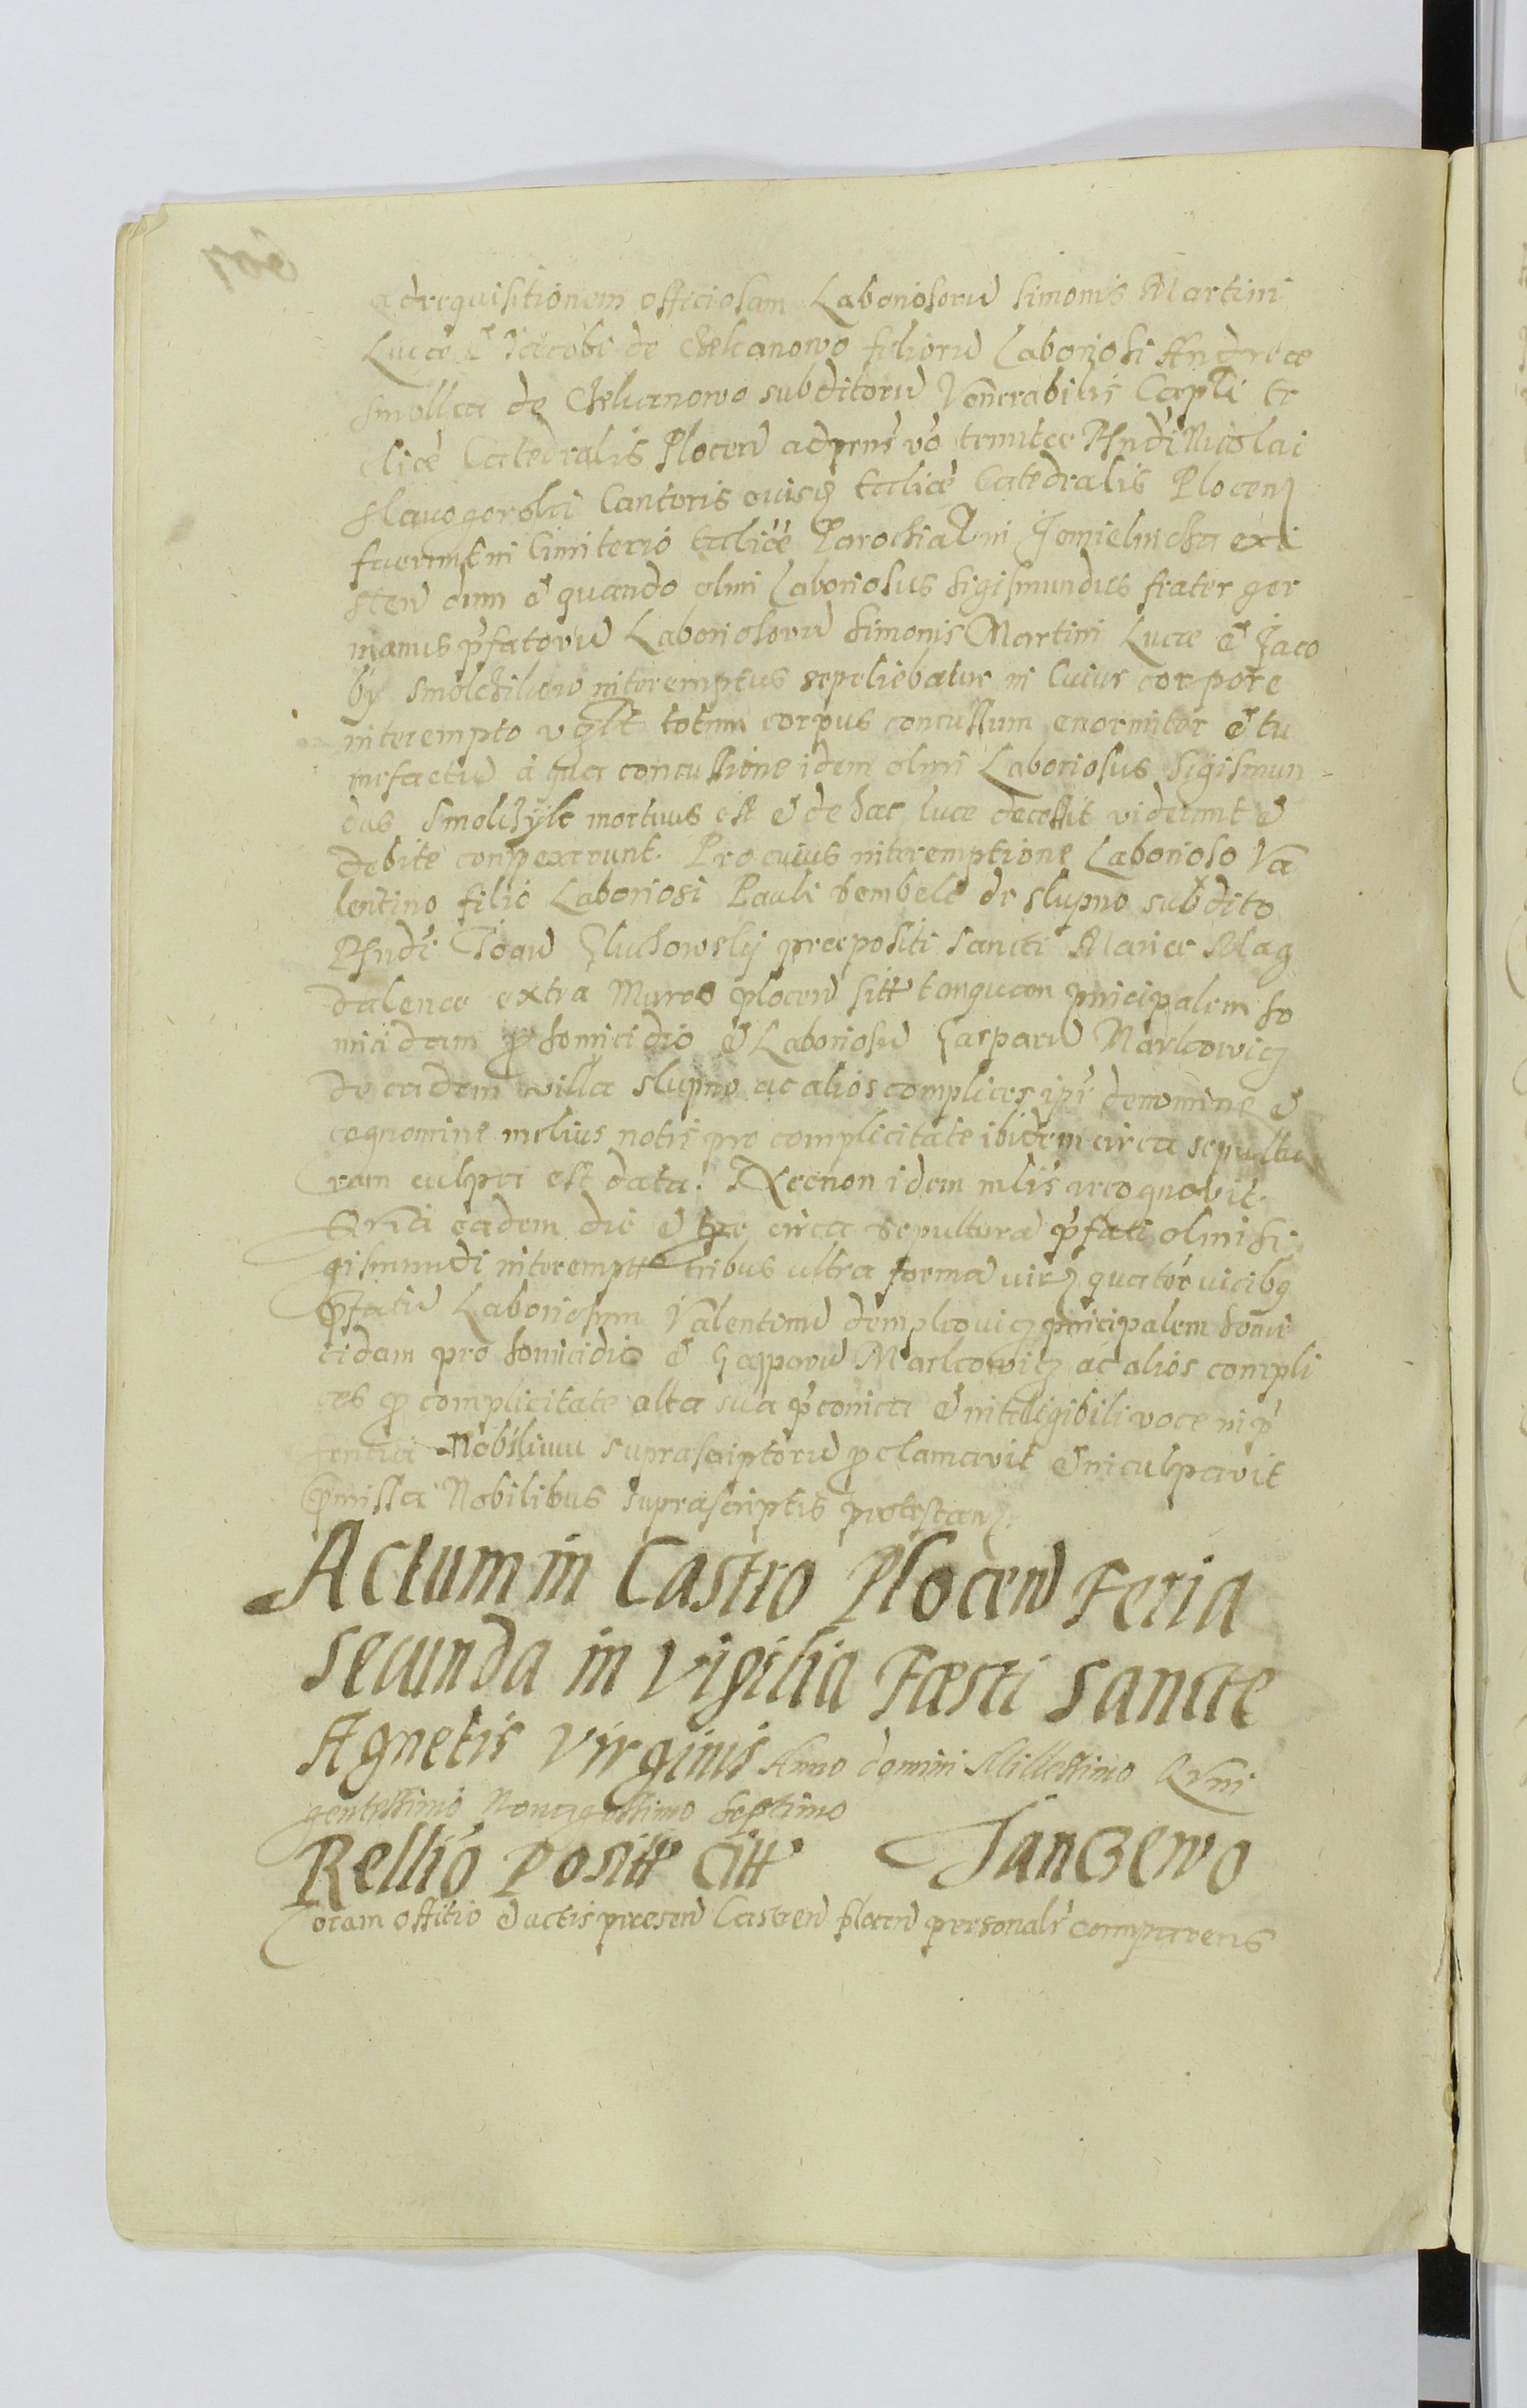 ad requisitionem officiosam Laboriosoru Simonis Martini
Lucæ et Jacobi de Chelcanowo filioru Laboriosi Andreæ
Smolka de Chelcanowo subditoru Venerabilis Capli Ec
cliæ Catedralis Plocen ad prns vo tenutæ Rndi Nicolai
Cantoris Eccliæ Catedralis Plocen
fuerunt in Cimiterio Eccliæ Parochial in Jemielnicha exi
sten dum et quando olim Laboriosus Sigismundus frater ger
manus pfatoru Laboriosoru Simonis Martini Lucæ et Jaco
by interemptus sepeliebatur in Cuius corpore
interempto totum corpus concussum enormiter et tu
mefactu a qua concussione idem olim Laboriosus Sigismun
dus Smolchyk mortuus est et de hac luce decessit viderunt et
debite conspexerunt. Pro cuius interemptione Laborioso Va
lentino filio Laboriosi Pauli Dembek de Slupno subdito
Rndi Joan Gluchowskij præpositi Sancti Mariæ Mag
dalenæ extra Muros plocen sitt tanquam principalem ho
micidam p homicidio et Laboriosu Gasparu Markowicz
de eadem villa Slupno ac alios complices ipi de nomine et
cognomine melius notis pro complicitate ibidem circa sepultu
ram culpa est data. Necnon idem mlis recognovit
eadem die et circa sepultura pfati olim Si
gismundi interempti tribus ultra forma quater vicibq
pfatu Laboriosum Valentinu principalem homi
cidam pro homicidio et Gasparu Markowicz ac alios compli
ces p complicitate alta sua pconica et inteligibili voce in p
sentia Nobilium suprascriptoru pclamavit et inculpavit
pmissa Nobilibus suprascriptis protestan.
Actum in Castro Plocen Feria
secunda in Vigilia Fæsti Sanctæ
Agnetis Virginis Anno domini Millessimo Quin
gentessimo Nonagessimo Septimo
Rellio Positt Citt Janczewo
Coram offitio et actis præsen Castren plocen personalr comparens